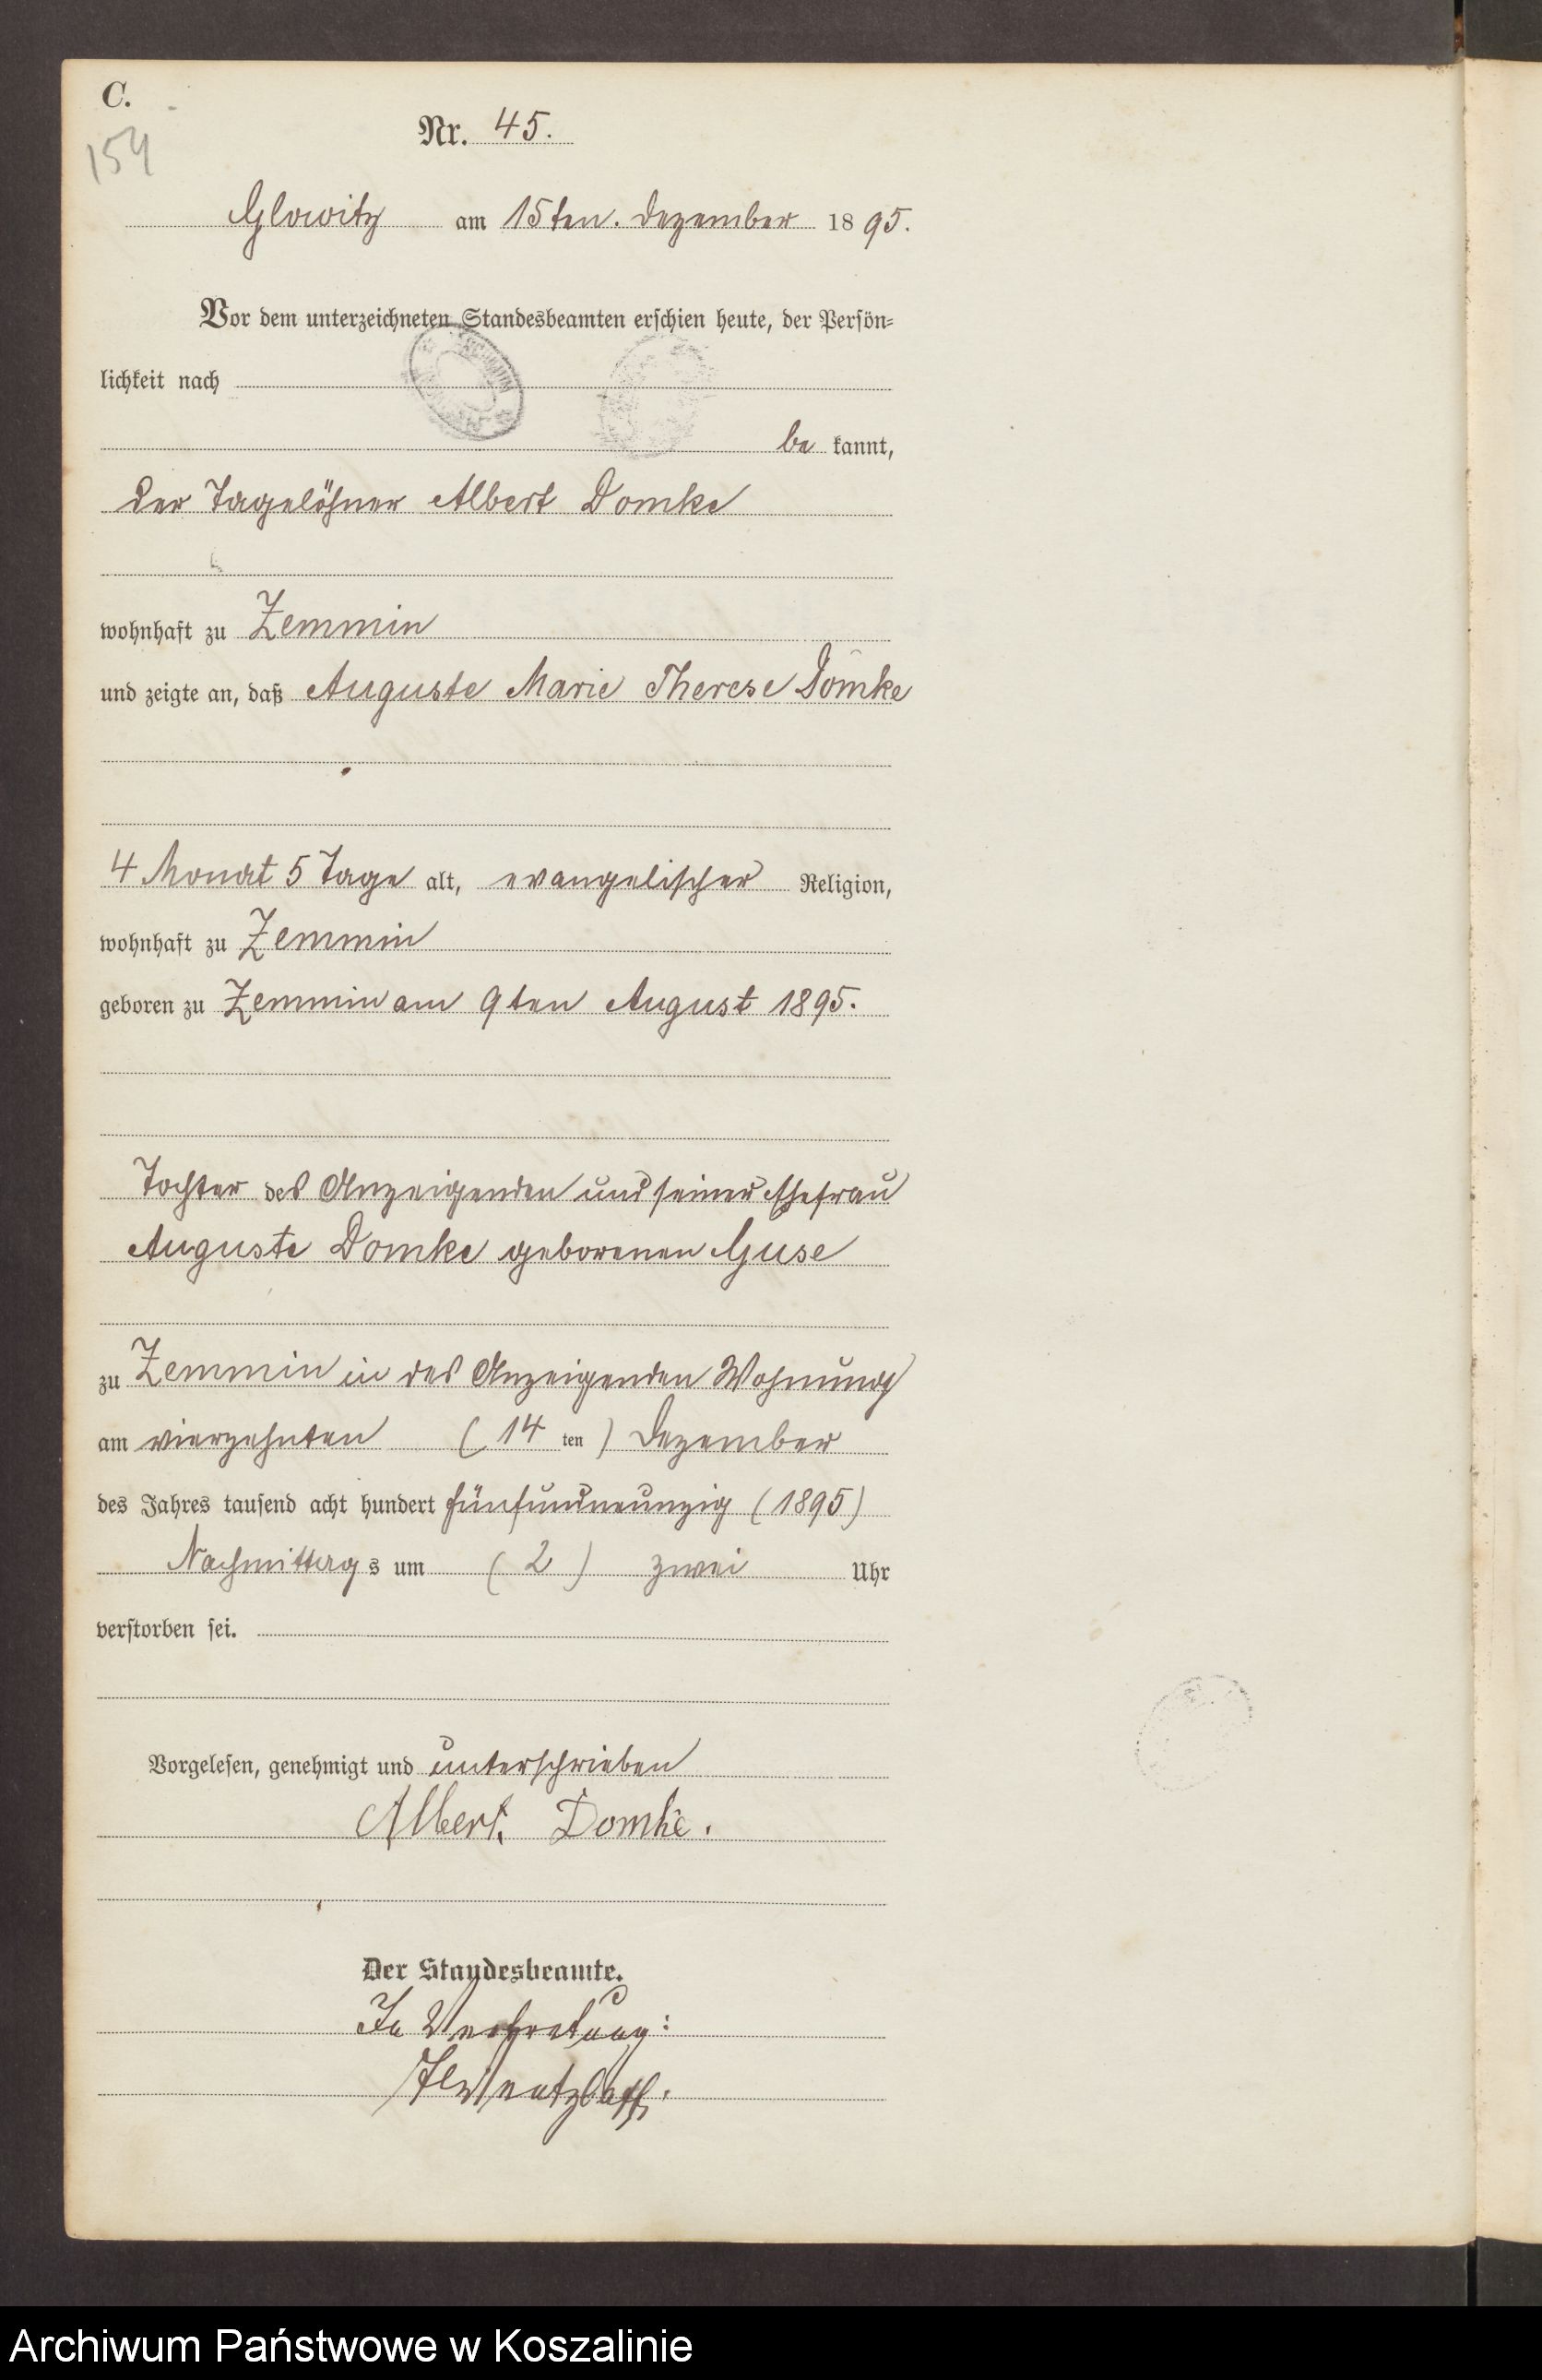 C.
154
Nr. 45.
Glowitz am 15ten. Dezember 1895.
Vor dem unterzeichneten Standesbeamten erschien heute, der Persön=
lichkeit nach
be kannt,
der Tagelöhner Albert Domke
wohnhaft zu Zemmin
und zeigte an, daß Auguste Marie Therese Domke
4 Monat 5 Tage alt, evangelischer Religion,
wohnhaft zu Zemmin
geboren zu Zemmin am 9ten August 1895.
Tochter des Anzeigenden und seiner Ehefrau
Auguste Domke geborenen Guse
zu Zemmin in des Anzeigenden Wohnung
am vierzehnten (14 ten) Dezember
des Jahres tausend acht hundert fünfundneunzig (1895)
Nachmittags um (2) zwei Uhr
verstorben sei.
Vorgelesen, genehmigt und unterschrieben
Albert Domke.
Der Standesbeamte.
In Vertretung:
Archiwum Państwowe w Koszalinie